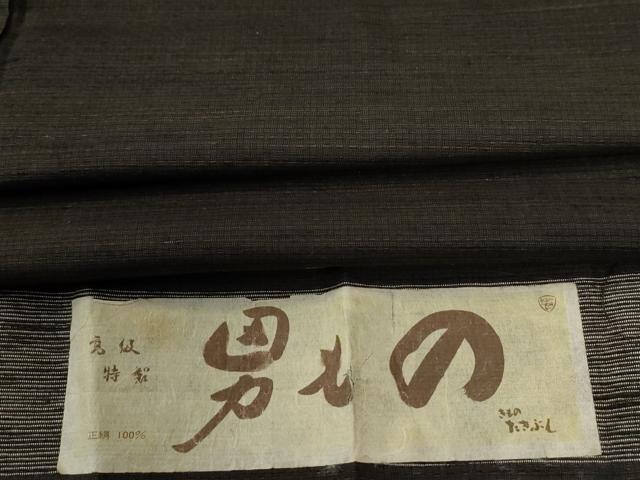 高級
特製
男もの
正絹 100%
きもの
たきぶん